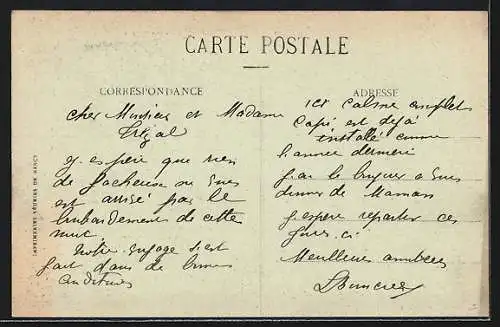 CARTE POSTALE
CORRESPONDANCE
cher Monsieur et Madame
j'espère que rien
de facheux ne vous
est arrivé par le
bombardement de cette
nuit
Notre voyage s'est
fait dans de bonnes
conditions
ADRESSE
ici calme complet
Papi est déjà
installé comme
l'année dernière
de Maman
j'espère repartir ces
jours ci
Meilleures amitiés
IMPRIMERIES RÉUNIES DE NANCY